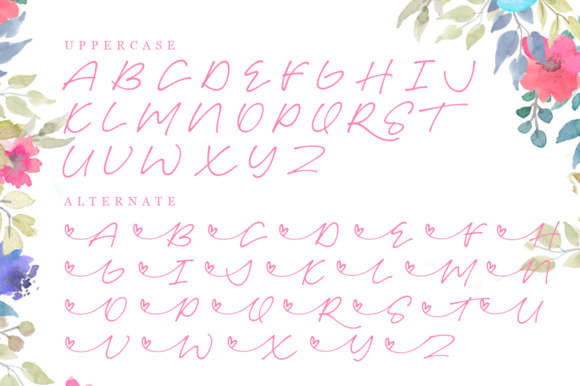 UPPERCASE
A B C D E F G H I J
K L M N O P Q R S T
U V W X Y Z
ALTERNATE
A B C D E F H
G I J K L M N
O P Q R S T U
V W X Y Z